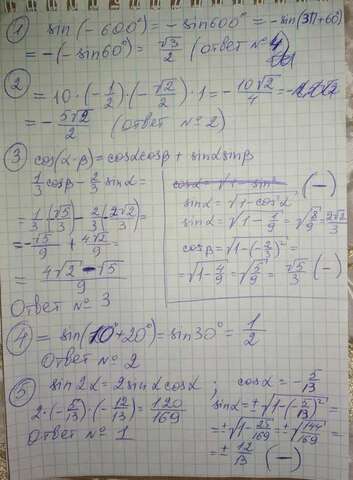 ① sin(-600°) = -sin600° = -sin(3π+60)
= -(-sin60°) = √3/2 (ответ № 4)
② = 10·(-1/2)·(-√2/2)·1 = -10√2/4 =
= -5√2/2 (ответ № 2)
③ cos(α-β) = cosαcosβ + sinαsinβ
1/3 cosβ - 2/3 sinα =
1/3(√5/3) - 2/3(2√2/3) =
= -√5/9 + 4√2/9 =
= (4√2 - √5)/9
Ответ № 3
cosα = √1-sin² , (-)
sinα = √1-cos²α
sinα = √1-1/9 = √8/9 = 2√2/3
cosβ = √1-(-2/3)² =
= √1-4/9 = √5/9 = √5/3 (-)
④ = sin(10°+20°) = sin30° = 1/2
Ответ № 2
⑤ sin2α = 2sinαcosα ; cosα = -5/13
2·(-5/13)·(-12/13) = 120/169
Ответ № 1
sinα = ±√1-(-5/13)² =
= ±√1-25/169 = ±√144/169 =
= ±12/13 (-)